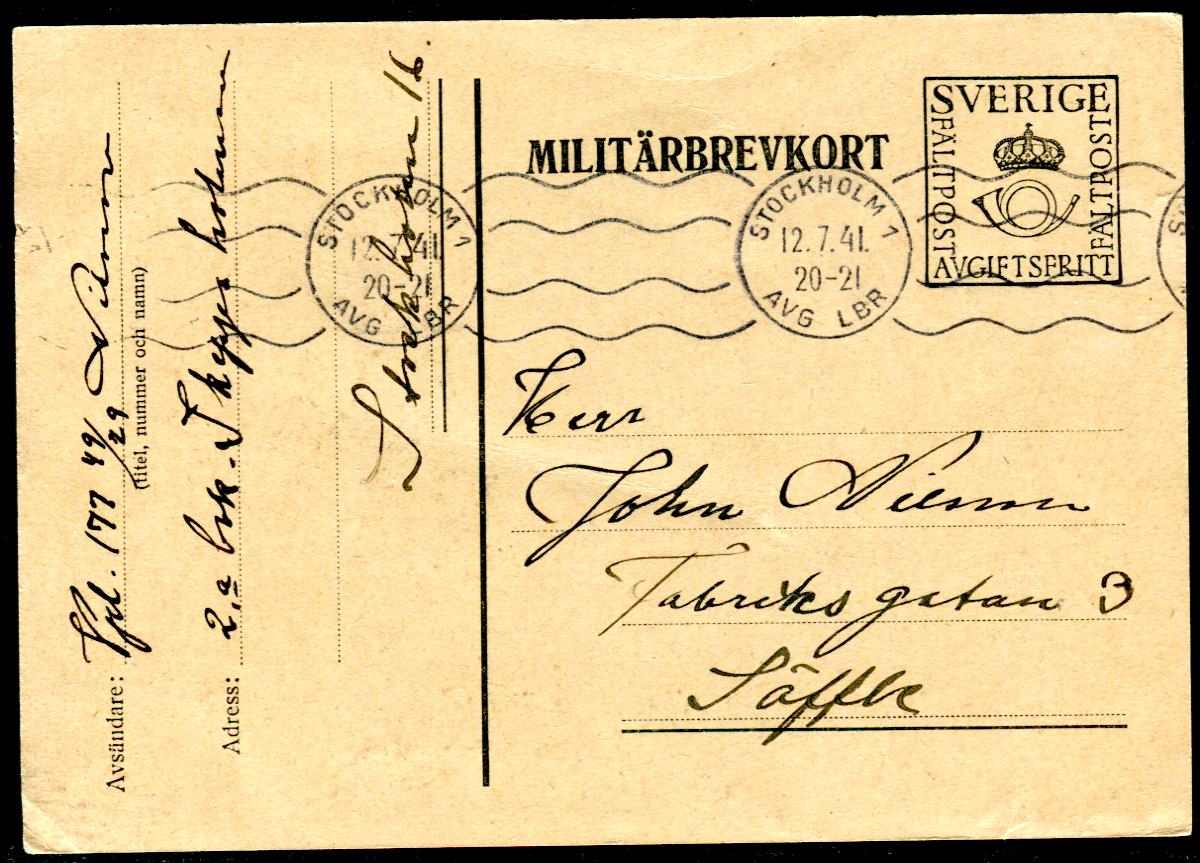 Avsändare: Vpl. 177 49/29 Nilsson
(titel, nummer och namn)
Adress: 2.a bok. Skeppsholmen
Stockholm 16.
MILITÄRBREVKORT
SVERIGE
FÄLTPOST
FÄLTPOSTE
AVGIFTSFRITT
STOCKHOLM 1
12.7.41.
20-21
AVG LBR
STOCKHOLM 1
12.7.41.
20-21
AVG LBR
Herr
John Nilsson
Fabriksgatan 3
Säffle